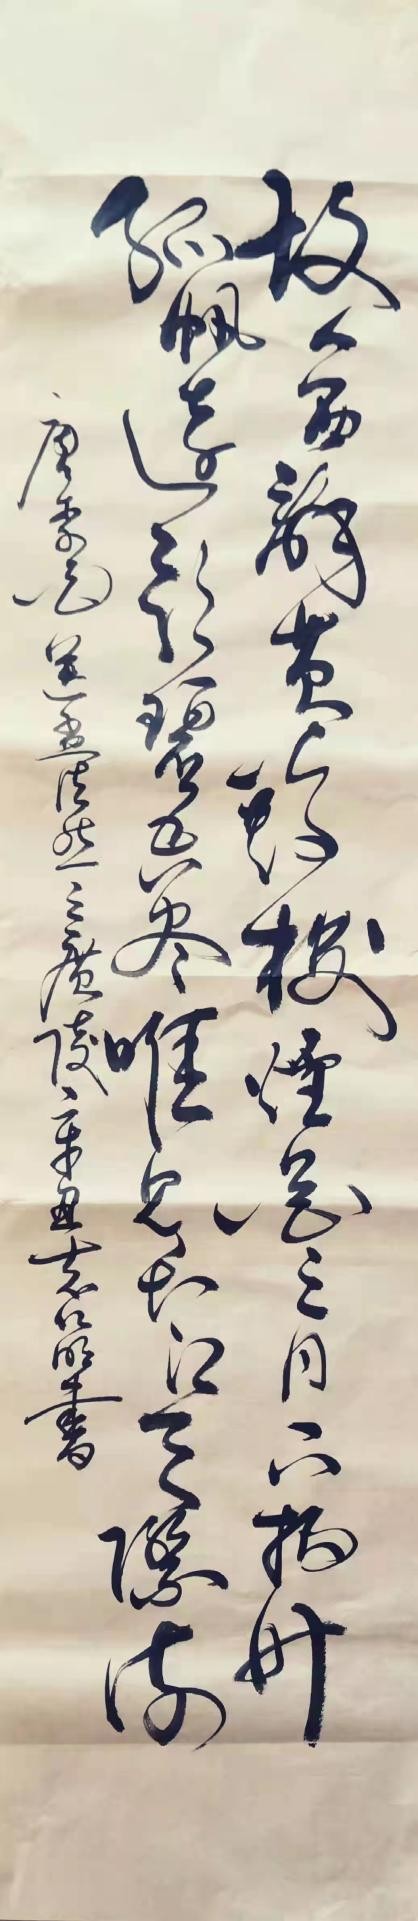 故人西辭黄鶴楼煙花三月下揚州
孤帆遠影碧空尽唯見长江天際流
唐李白送孟浩然之廣陵辛丑書